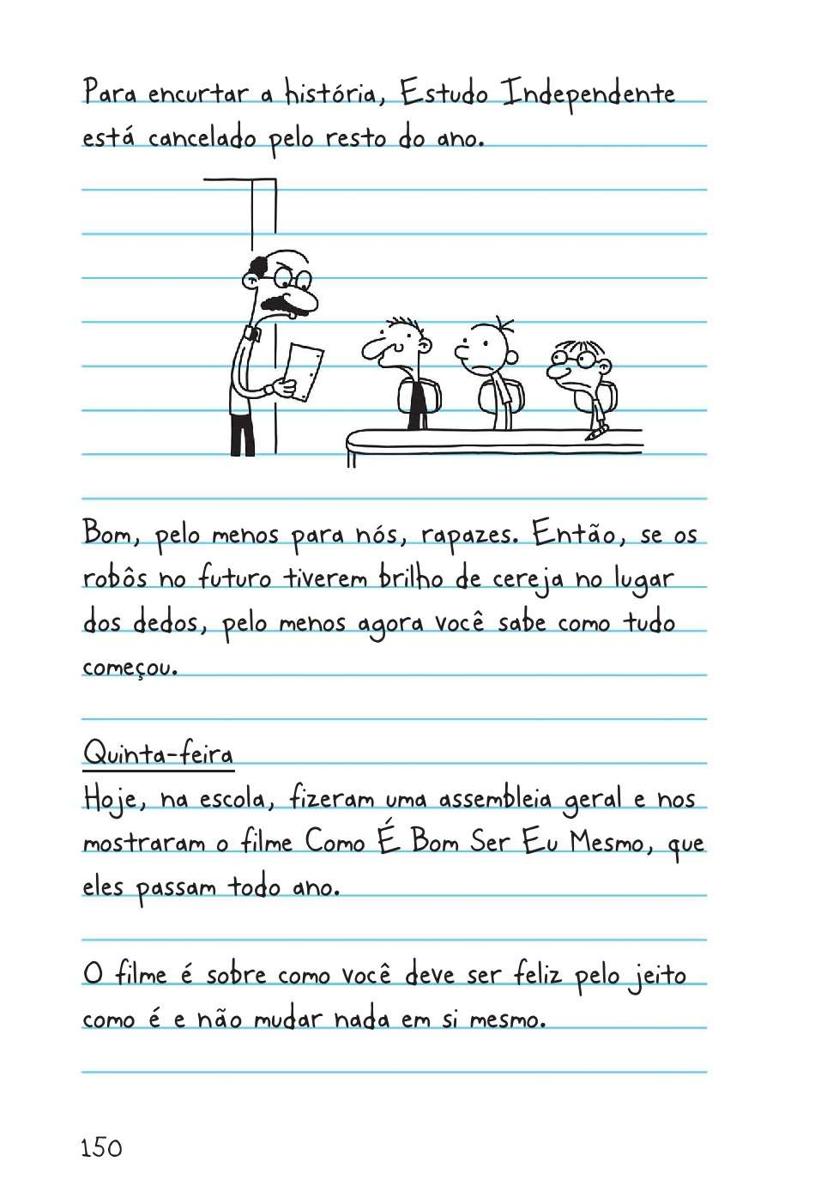 Para encurtar a história, Estudo Independente
está cancelado pelo resto do ano.
Bom, pelo menos para nós, rapazes. Então, se os
robôs no futuro tiverem brilho de cereja no lugar
dos dedos, pelo menos agora você sabe como tudo
começou.
Quinta-feira
Hoje, na escola, fizeram uma assembleia geral e nos
mostraram o filme Como É Bom Ser Eu Mesmo, que
eles passam todo ano.
O filme é sobre como você deve ser feliz pelo jeito
como é e não mudar nada em si mesmo.
150